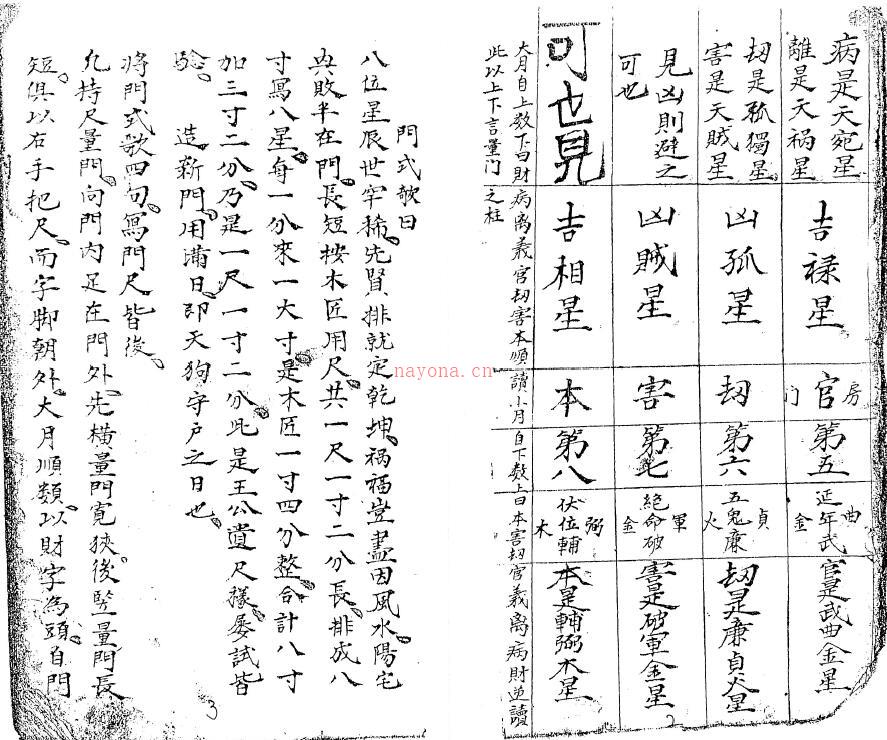 病是天宛星
離是天禍星
刼是孤獨星
害是天賊星
見凶則避之
可也
可也見
吉禄星
凶孤星
凶賊星
吉相星
房官门
刼
害
本
第五
第六
第七
第八
延年武曲金
五鬼廉貞火
絕命破軍金
伏位輔弼木
官是武曲金星
刼是廉貞火星
害是破軍金星
本是輔弼木星
大月自上数下曰財病离義官刼害本順讀小月自下数上曰本害刼官義离病財逆讀
此以上下言量门之柱
2
門式歌曰
八位星辰世罕稀先賢排就定乾坤禍福豈盡因風水陽宅
興敗半在門長短按木匠用尺共一尺一寸二分長排成八
寸寫八星每一分來一大寸是木匠一寸四分整合計八寸
加三寸二分乃是一尺一寸二分此是王公遺尺樣屡試皆
驗 造新門用滿日即天狗守戶之日也
將門式歌四句寫門尺皆後
九持尺量門向門内足在門外先橫量門寬狹後竪量門長
短俱以右手把尺而字脚朝外大月順類以財字為頭自門
3
nayona.cn